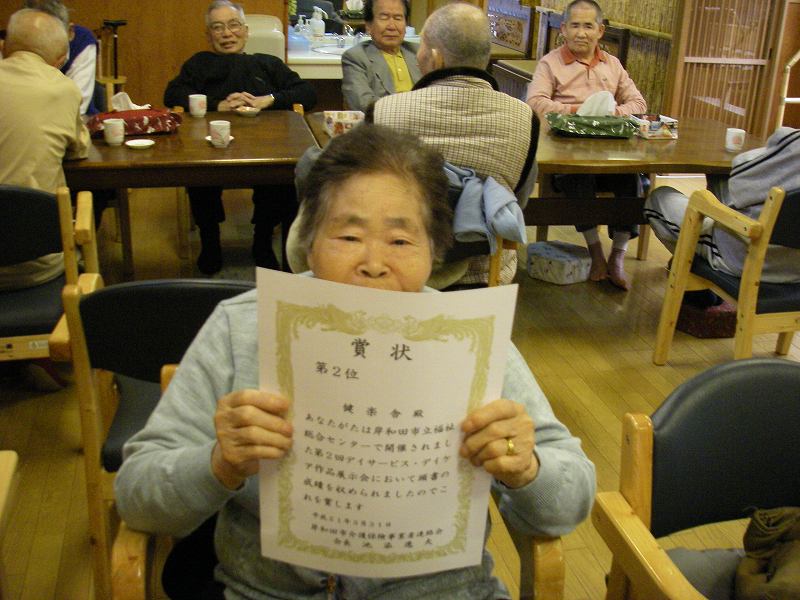 賞状
第2位
健楽舎 殿
あなたがたは岸和田市立福祉
総合センターで開催されまし
た第2回デイサービス・デイケ
ア作品展示会において頭書の
成績を収められましたのでこ
れを賞します
平成21年3月31日
岸和田市介護保険事業者連絡会
会長 池 逸夫